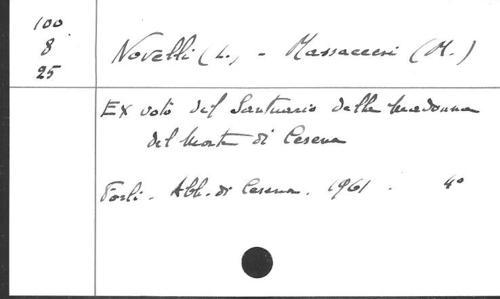 100
8
25
Novelli (L.) - Massaccesi (M.)
Ex voto del Santuario della Madonna
del Monte di Cesena
Forlì - Abb. di Cesena. 1961. 4°